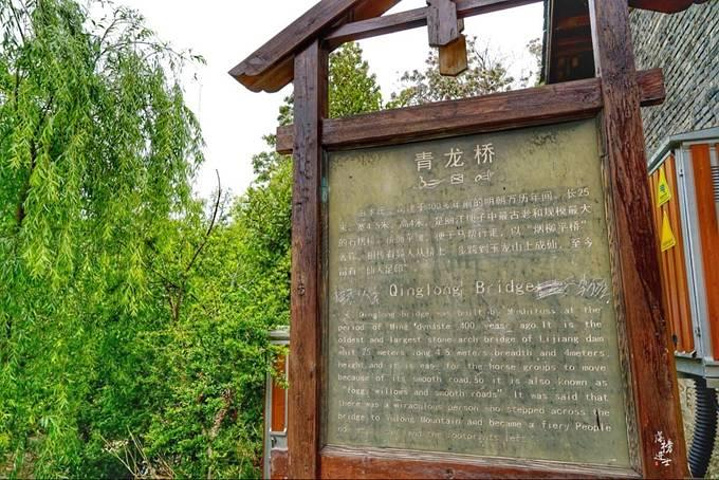 青龙桥
400多年前的明朝万历年间，长25
米，宽4.5米，高4米，是丽江坝子中最古老和规模最大
的石拱桥。
"烟柳平桥"
玉龙山上成仙，至今
留有"仙人足印"
Qinglong Bridge
Qinglong Bridge was built by Mushitusi at the
period of Ming "dynaste 400 years ago.It is the
oldest and largest stone arch bridge of Lijiang dam
25 meters long,4.5 meters breadth and 4meters
height,and it is easy for the horse groups to move
because of its smooth road.So it is also known as
"foggy willows and smooth roads" It was said that
there was a miraculous person who stepped across the
bridge to Yulong Mountain and became a fiery People
and the footprints left